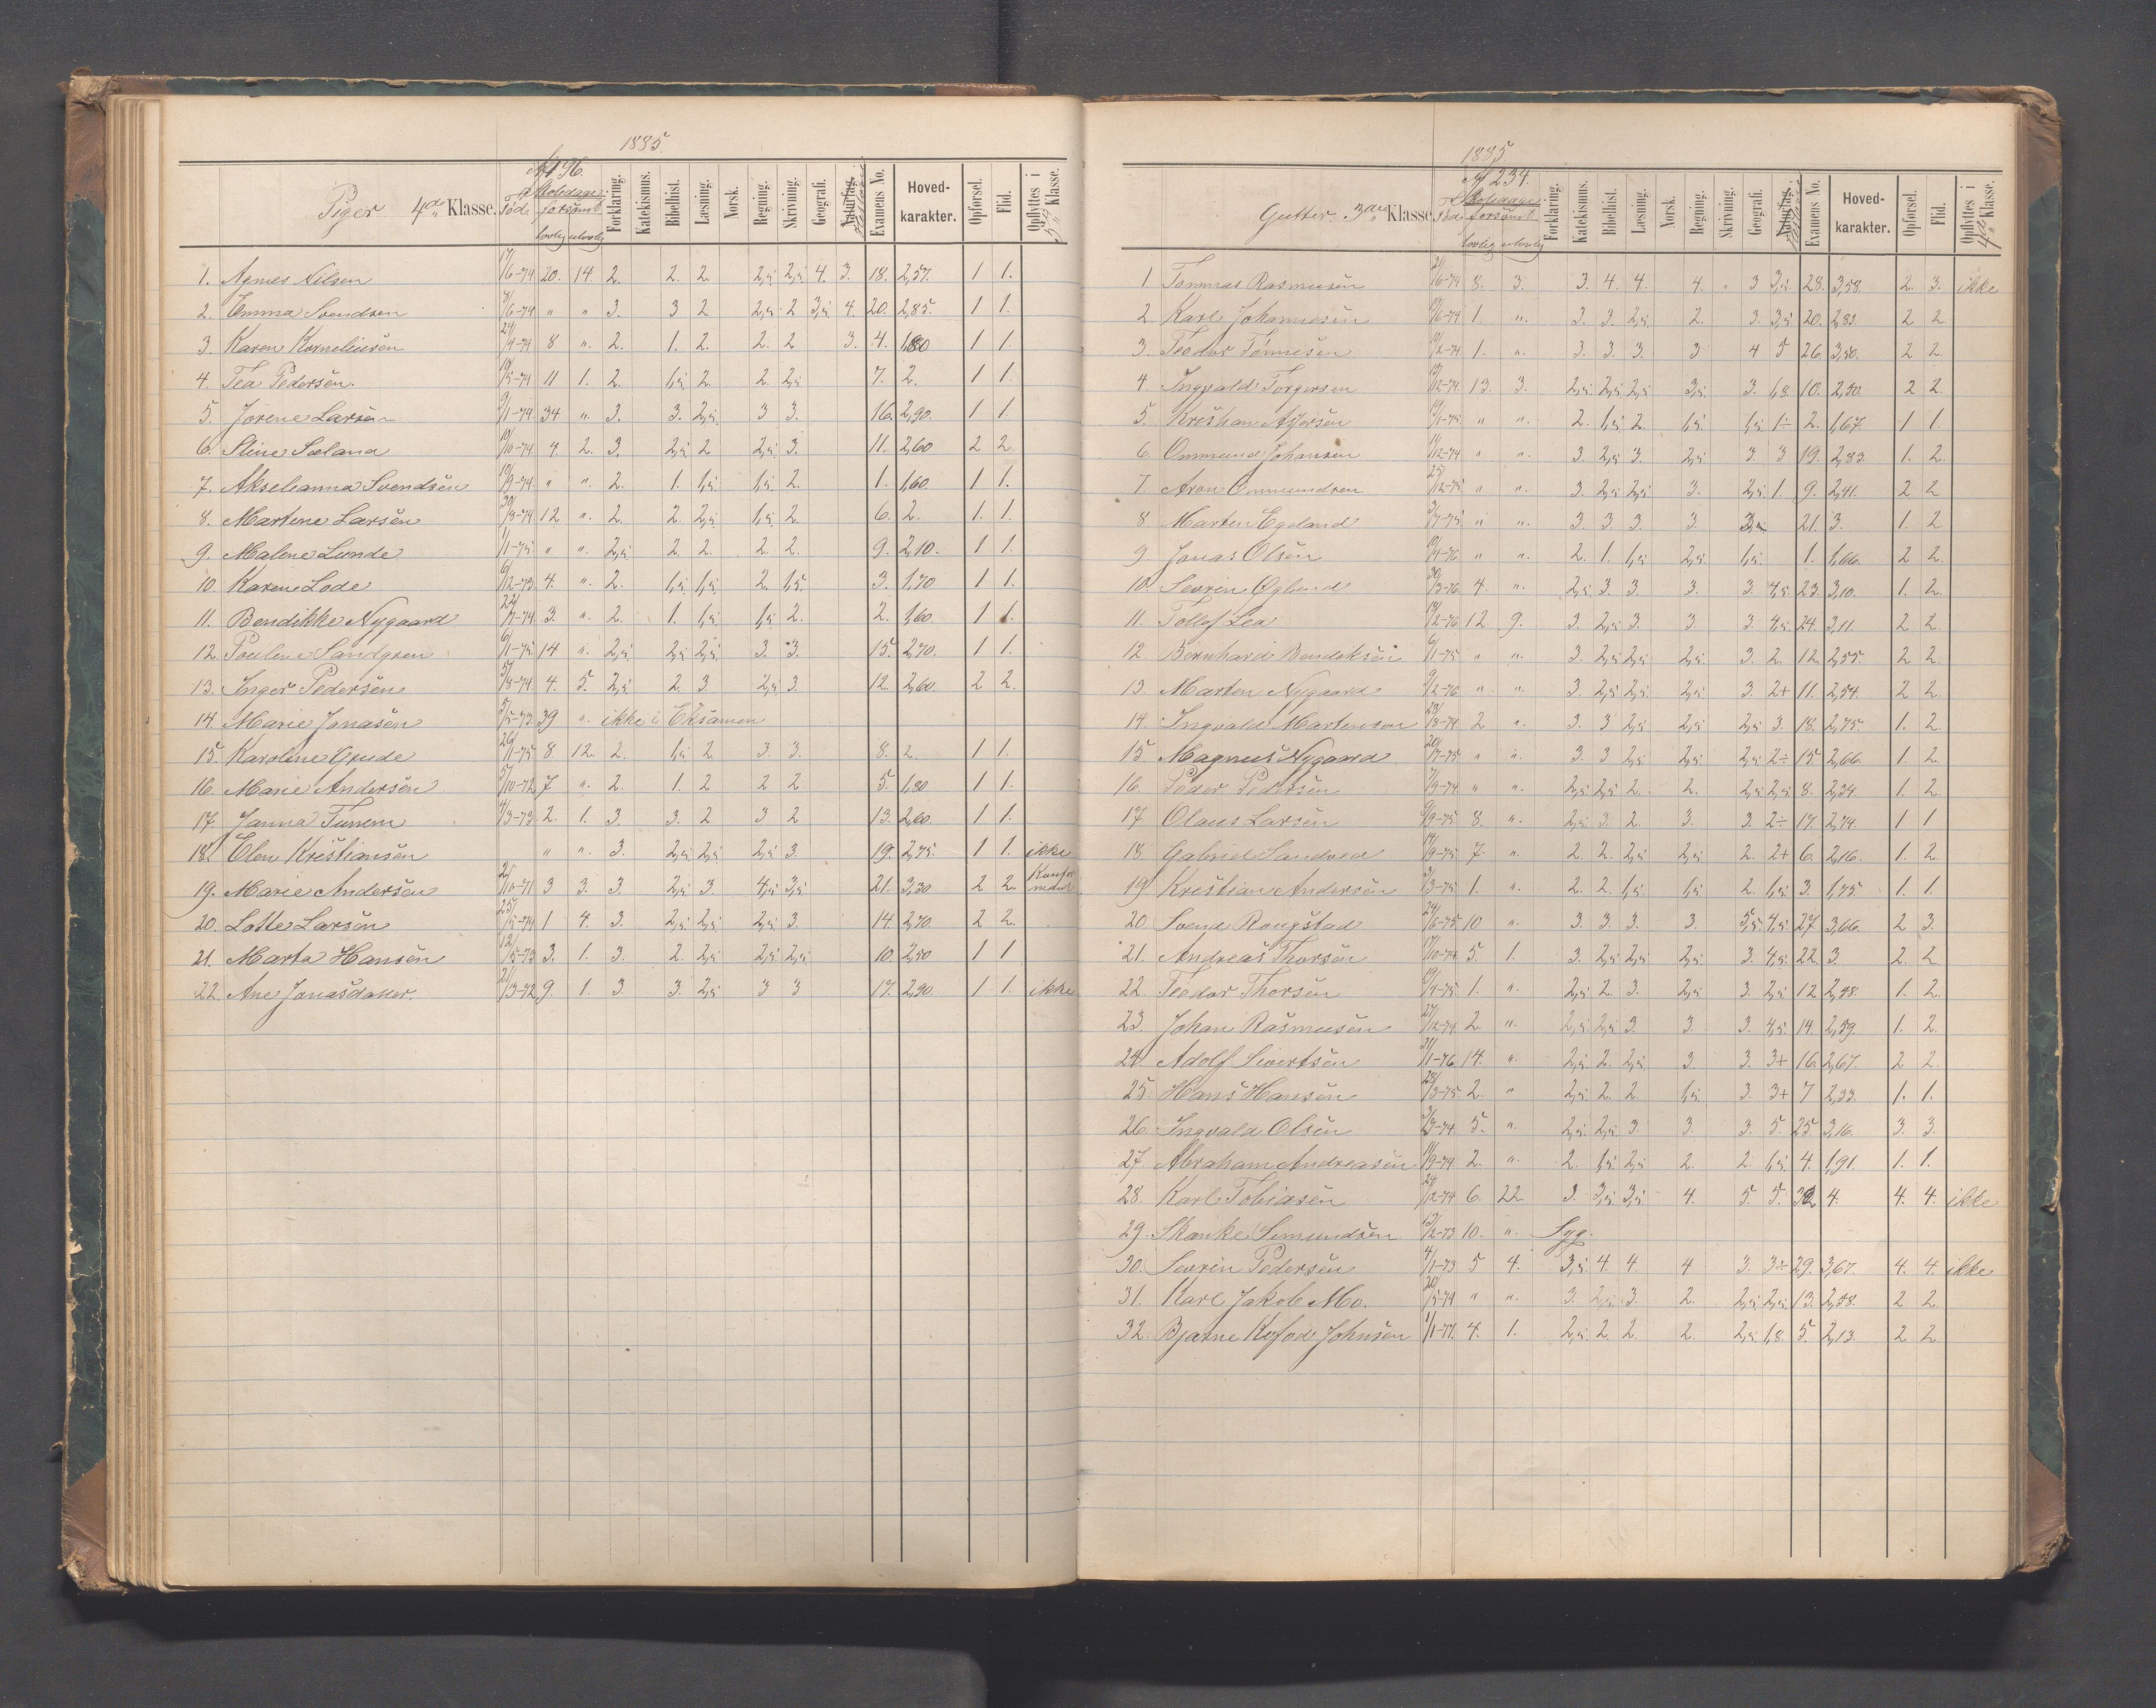 1885.
Af 196.
Skoledage
forsømt
Piger 4de Klasse. Fød. lovlig ulovlig Forklaring. Katekismus. Bibelhist. Læsning. Norsk. Regning. Skrivning. Geografi. Naturfag. Examens No. Hoved-karakter. Opførsel. Flid. Opflyttes i 5te Klasse.
1. Agnes Nilsen 17/6-74 20. 14. 2. 2. 2. 2,5 2,5 4. 3. 18. 2,57. 1 1.
2. Emma Svendsen 7/6-74 " " 3. 3 2. 2,5 2 3,5 4. 20. 2,85. 1 1.
3. Karen Korneliusen 24/4-74 8 " 2. 1. 2. 2. 2 3. 4. 1,80 1 1.
4. Tea Pedersen. 19/5-74 11 1. 2. 1,5 2. 2. 2,5 7. 2. 1 1.
5. Jorene Larsen 9/1-74 34 " 3. 3. 2,5 3 3. 16. 2,90. 1 1.
6. Stine Sæland 19/10-74 4. 2. 3. 2,5 2 2,5 3. 11. 2,60 2 2.
7. Akselianna Svendsen 19/9-74. " " 2. 1. 1,5 1,5 2. 1. 1,60. 1 1.
8. Martine Larsen 30/8-74 12 " 2. 2. 2,5 1,5 2. 6. 2. 1. 1.
9. Malene Lunde 1/11-75. " " 2,5 2. 2. 2. 2. 9. 2,10. 1 1.
10. Karen Lode 6/12-73 4. " 2. 1,5 1,5 2. 1,5 3. 1,70 1 1.
11. Bendikke Nygaard 22/7-74 3. " 2. 1. 1,5 1,5 2. 2. 1,60. 1 1.
12. Pouline Sandgren 6/11-75 14 " 2,5 2,5 2,5 3. 3. 15. 2,70. 1 1.
13. Inger Pedersen 5/8-74. 4. 5. 2,5 2. 3. 2,5 3. 12. 2,60. 2 2.
14. Marie Jonasen 5/5-73 39 " ikke i Eksamen
15. Karoline Grude 26/11-75 8 12. 2. 1,5 2. 3 3. 8. 2. 1 1.
16. Marie Andersen 5/10-72 7 " 2. 1. 2 2 2. 5. 1,80 1 1.
17. Janna Tunem 4/3-73 2. 1. 3 3. 2 3 2 13. 2,60. 1 1.
18. Elen Kristiansen " " 3. 2,5 2,5 2,5 3. 19. 2,75. 1 1. ikke
19. Marie Andersen 2/10-71 3 3. 3. 2,5 3. 4,5 3,5 21. 3,30 2 2.
20. Lotte Larsen 25/5-74 1 4. 3. 2,5 2,5 2,5 3. 14. 2,70. 2 2.
21. Marta Hansen 12/5-73 3. 1. 3. 2. 2,5 2,5 2,5 10. 2,50 1 1
22. Ane Jonasdatter. 21/3-72 9. 1. 3. 3. 2,5 3 3 17. 2,90. 1 1. ikke
1885.
Af 234.
Skoledage
forsømt
Gutter. 3die Klasse. Fød. lovlig ulovlig Forklaring. Katekismus. Bibelhist. Læsning. Norsk. Regning. Skrivning. Geografi. Naturfag. Examens No. Hoved-karakter. Opførsel. Flid. Opflyttes i 4de Klasse.
1 Tommas Rasmusen 21/6-74 8. 3. 3. 4. 4. 4. " 3 3,5 28. 3,58. 2. 3. ikke
2. Karl Johannesen 17/6-74 1 " 3. 3. 2,5 2. 3. 3,5 20. 2,83. 2 2.
3. Teodor Tønnesen 19/2-74. 1. " 3. 3. 3. 3 4 5 26. 3,50. 2 2.
4. Ingvald Torgersen 13/12-74 13. 3. 2,5 2,5 2,5 3,5 3. 1,8 10. 2,50. 2 2.
5. Kristian Asjorsen 19/1-75. " " 2. 1,5 2. 1,5 1,5 1÷ 2. 1,67. 1 1.
6. Ommund Johansen 11/12-74 " " 3. 2,5 3. 2,5 3. 3 19. 2,83. 1. 2.
7 Aron Ommundsen 25/12-75 " " 3. 2,5 2,5 3. 2,5 1. 9. 2,41. 2 2
8 Marten Egeland 3/7-75 " " 3. 3. 3. 3. 21. 3. 1. 2
9. Jonas Olsen 19/4-76 " " 2. 1. 1,5 2,5 1,5 1. 1,66. 2 2.
10. Sevrin Øglend 30/3-76 4. " 2,5 3. 3. 3. 3. 4,5 23. 3,10. 1. 2.
11. Tollef Lea 18/2-76 12. 9. 3. 2,5 3. 3. 3 4,5 24. 3,11. 2 2.
12. Bernhard Bendiksen 6/11-75 " " 3. 2,5 2,5 2,5 3. 2. 12. 2,55. 2 2.
13. Marten Nygaard 9/2-76 " " 3. 2,5 2,5 2,5 3. 2+ 11. 2,54. 2 2.
14. Ingvald Martensen 23/8-74. 2 " 3. 3 2,5 2,5 2,5 3. 18. 2,75. 1. 2.
15. Magnus Nygaard 20/7-75 " " 3. 3 2,5 2,5 2,5 2÷ 15. 2,66. 1 2.
16. Peder Pedersen 7/9-74 " " 2,5 2,5 2. 2. 2,5 2,5 8. 2,34. 1. 2.
17. Olaus Larsen 9/9-75 8. " 2,5 3. 2. 3. 3. 2÷ 17. 2,74. 1 1
18. Gabriel Sandved 14/9-75 7. " 2. 2. 2,5 2,5 2. 2+ 6. 2,16. 1. 2.
19 Kristian Andersen 3/3-75 1. " 2. 2. 1,5 1,5 2. 1,5 3. 1,75. 1. 1.
20. Svend Rougstad 24/6-75 10 " 3. 3. 3. 3. 5,5 4,5 27. 3,66. 2 3.
21. Andreas Thorsen 17/10-74 5. 1. 3. 2,5 2,5 2,5 3. 4,5 22. 3. 2. 2.
22. Teodor Thorsen 19/4-75 1. " 2,5 2. 3. 2,5 3. 2,5 12 2,58. 1. 2.
23. Johan Rasmusen 27/12-74 2. " 2,5 2,5 3. 3. 3. 4,5 14. 2,59. 1. 2.
24. Adolf Sivertsen 21/1-76 14. " 2,5 2. 2,5 3 3. 3+ 16. 2,67. 2 2.
25. Hans Hansen 28/3-75 2. " 2,5 2. 2. 1,5 3. 3+ 7 2,33. 1. 1.
26. Ingvald Olsen 3/3-74 5. " 2,5 2,5 3. 3. 3. 5. 25. 3,16. 3. 3.
27. Abraham Andreasen 11/9-74 2. " 2. 1,5 2,5 2. 2. 1,5 4. 1,91. 1. 1.
28. Karl Tobiasen 24/12-74 6. 22. 3. 3,5 3,5 4. 5 5. 32 4. 4. 4. ikke
29. Skanke Semundsen 13/2-73 10. " Syg.
30. Sevrin Pedersen 4/1-73 5 4. 3,5 4. 4. 4 3. 3÷ 29. 3,67. 4. 4. ikke
31. Karl Jakob Mo. 20/5-74 " " 3. 2,5 3. 2. 2,5 2,5 13. 2,58. 2 2.
32. Bjarne Kofode Johnsen 1/1-77. 4. 1. 2,5 2. 2. 2. 2,5 1,8. 5. 2,13. 2 2.